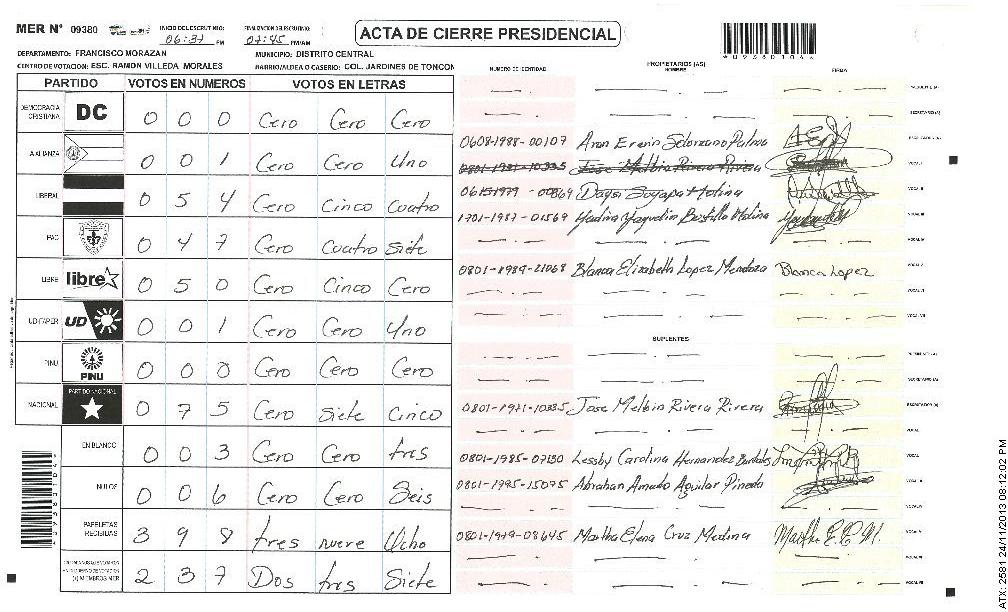 MER N° 09380 INICIO DEL ESCRUTINIO: 06:37 PM FINALIZACION DEL ESCRUTINIO: 07:45 PM/AM ACTA DE CIERRE PRESIDENCIAL
*09380104*
DEPARTAMENTO: FRANCISCO MORAZAN MUNICIPIO: DISTRITO CENTRAL
CENTRO DE VOTACION: ESC. RAMON VILLEDA MORALES BARRIO/ALDEA O CASERIO: COL. JARDINES DE TONCON
PARTIDO VOTOS EN NUMEROS VOTOS EN LETRAS
DEMOCRACIA CRISTIANA DC 0 0 0 Cero Cero Cero
ALIANZA 0 0 1 Cero Cero Uno
LIBERAL 0 5 4 Cero Cinco Cuatro
PAC 0 4 7 Cero Cuatro Siete
LIBRE libre 0 5 0 Cero Cinco Cero
UD-FAPER UD 0 0 1 Cero Cero Uno
PINU PINU 0 0 0 Cero Cero Cero
NACIONAL PARTIDO NACIONAL 0 7 5 Cero Siete Cinco
EN BLANCO 0 0 3 Cero Cero tres
NULOS 0 0 6 Cero Cero Seis
PAPELETAS RECIBIDAS 3 9 8 tres nueve Ocho
(+) MIEMBROS MER 2 3 7 Dos tres Siete
PROPIETARIOS (AS)
NUMERO DE IDENTIDAD NOMBRE FIRMA
PRESIDENTE (A)
SECRETARIO (A)
0608-1988-00107 Aron Erwin Solorzano Palma ESCRUTADOR (A)
0801-1971-10335 Jose Melbin Rivera Rivera VOCAL I
06151979-00869 Daysi Soyapa Molina VOCAL II
1701-1987-01569 Yadira Yaquelin Bustillo Molina VOCAL III
VOCAL IV
0801-1989-21068 Blanca Elizabeth Lopez Mendoza Blanca Lopez VOCAL V
VOCAL VI
VOCAL VII
SUPLENTES
PRESIDENTE (A)
SECRETARIO (A)
0801-1971-10335 Jose Melbin Rivera Rivera ESCRUTADOR (A)
VOCAL I
0801-1985-07130 Lessby Carolina Hernandez VOCAL
0801-1995-15075 Abrahan Amado Aguilar Pineda VOCAL
VOCAL IV
0801-1979-08645 Martha Elena Cruz Medina Martha E. C. M. VOCAL V
VOCAL VI
VOCAL VII
ATX: 2581 24/11/2013 08:12:02 PM